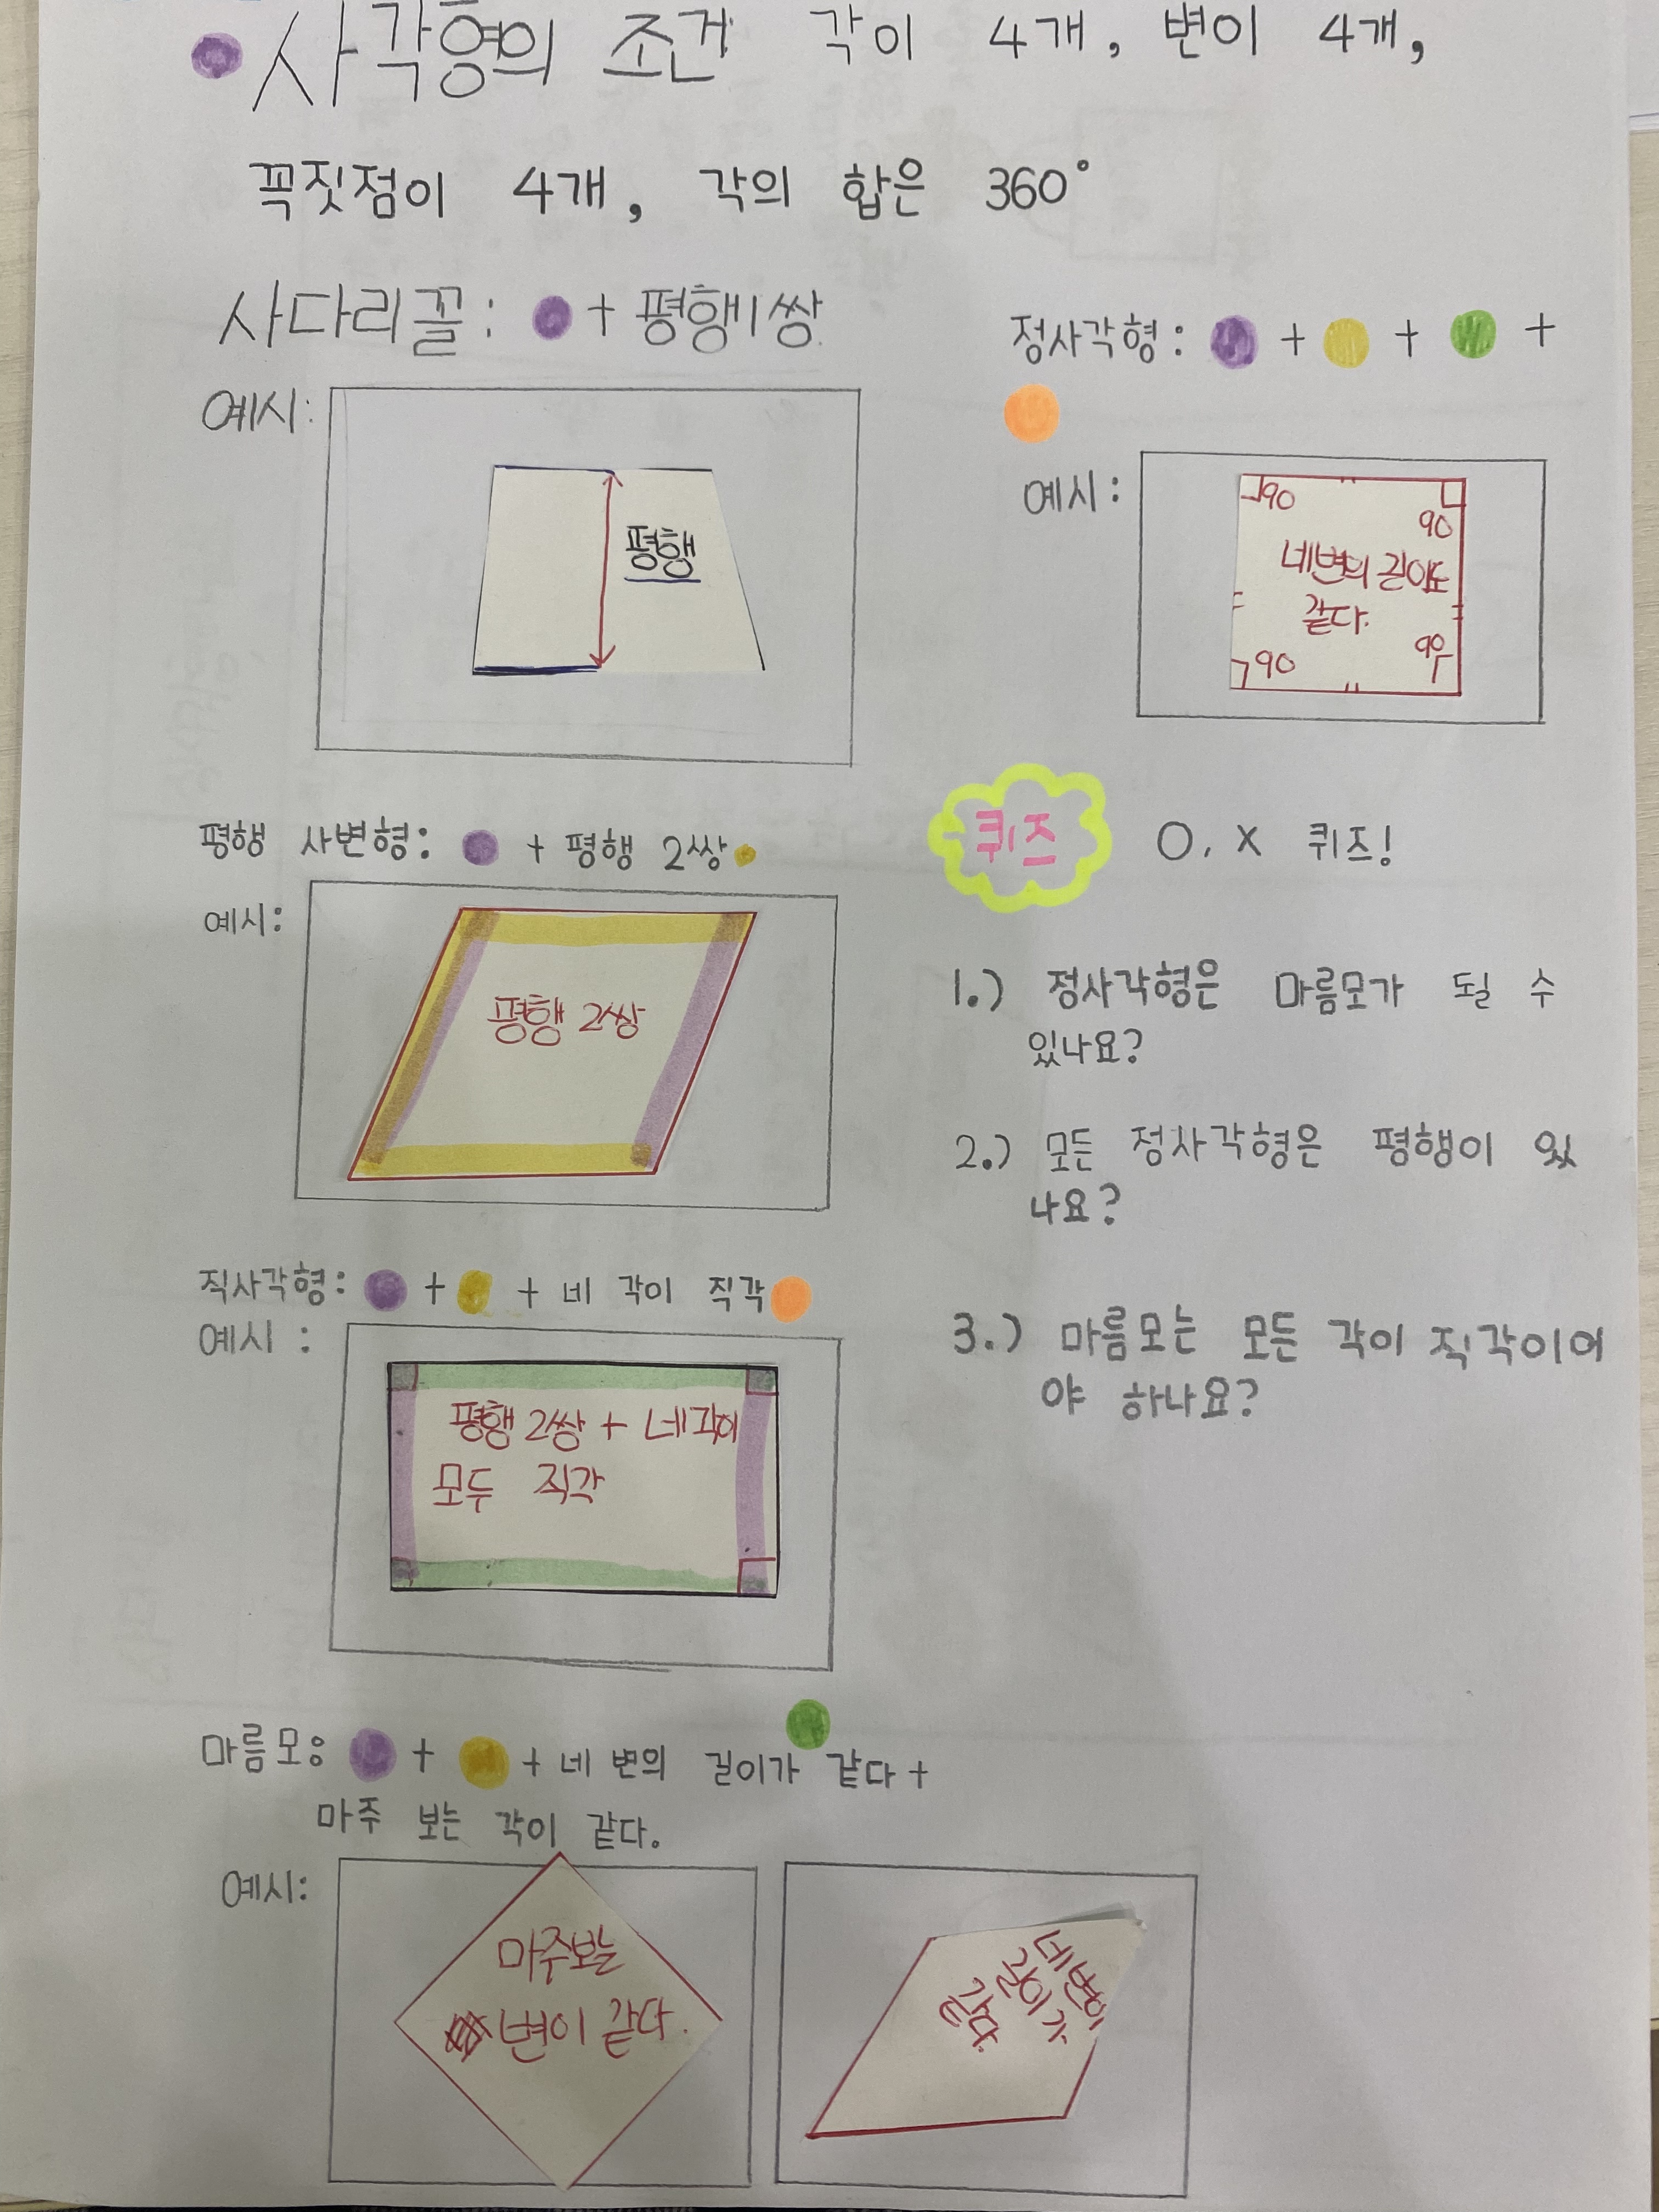 사각형의 조건 각이 4개, 변이 4개,
꼭짓점이 4개, 각의 합은 360°
사다리꼴: + 평행1쌍
예시:
평행
평행 사변형: + 평행 2쌍
예시:
평행 2쌍
직사각형: + + 네 각이 직각
예시 :
평행 2쌍 + 네각이
모두 직각
마름모: + + 네 변의 길이가 같다 +
마주 보는 각이 같다.
예시:
마주보는
변이 같다.
네변의
길이가
같다.
정사각형: + + +
예시:
90
90
네변의 길이도
같다.
90
90
퀴즈 O, X 퀴즈!
1.) 정사각형은 마름모가 될 수
있나요?
2.) 모든 정사각형은 평행이 있
나요?
3.) 마름모는 모든 각이 직각이어
야 하나요?